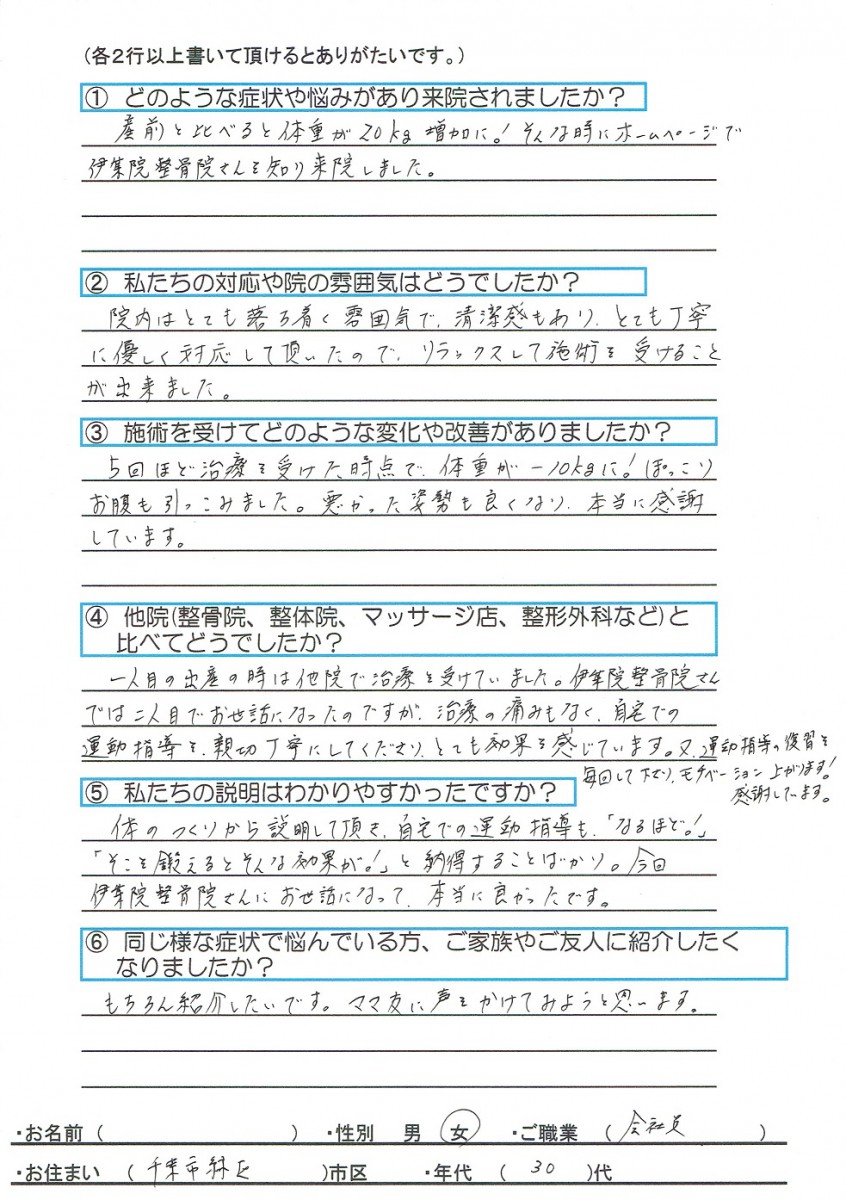 (各2行以上書いて頂けるとありがたいです。)
① どのような症状や悩みがあり来院されましたか？
産前と比べると体重が20kg増加に！そんな時にホームページで
伊集院整骨院さんを知り来院しました。
② 私たちの対応や院の雰囲気はどうでしたか？
院内はとても落ち着く雰囲気で、清潔感もあり、とても丁寧
に優しく対応して頂いたので、リラックスして施術を受けること
が出来ました。
③ 施術を受けてどのような変化や改善がありましたか？
5回ほど治療を受けた時点で、体重が−10kgに！ぽっこり
お腹も引っこみました。悪かった姿勢も良くなり、本当に感謝
しています。
④ 他院(整骨院、整体院、マッサージ店、整形外科など)と
比べてどうでしたか？
一人目の出産の時は他院で治療を受けていました。伊集院整骨院さん
では二人目でお世話になったのですが、治療の痛みもなく、自宅での
運動指導を、親切丁寧にしてくださり、とても効果を感じています。又、運動指導の復習を
毎回して下さり、モチベーション上がります！
感謝しています。
⑤ 私たちの説明はわかりやすかったですか？
体のつくりから説明して頂き、自宅での運動指導も、「なるほど！」
「そこを鍛えるとそんな効果が！」と納得することばかり。今回
伊集院整骨院さんにお世話になって、本当に良かったです。
⑥ 同じ様な症状で悩んでいる方、ご家族やご友人に紹介したく
なりましたか？
もちろん紹介したいです。ママ友に声をかけてみようと思います。
・お名前 ( ) ・性別 男 女 ・ご職業 ( 会社員 )
・お住まい ( 千葉市緑区 )市区 ・年代 ( 30 )代